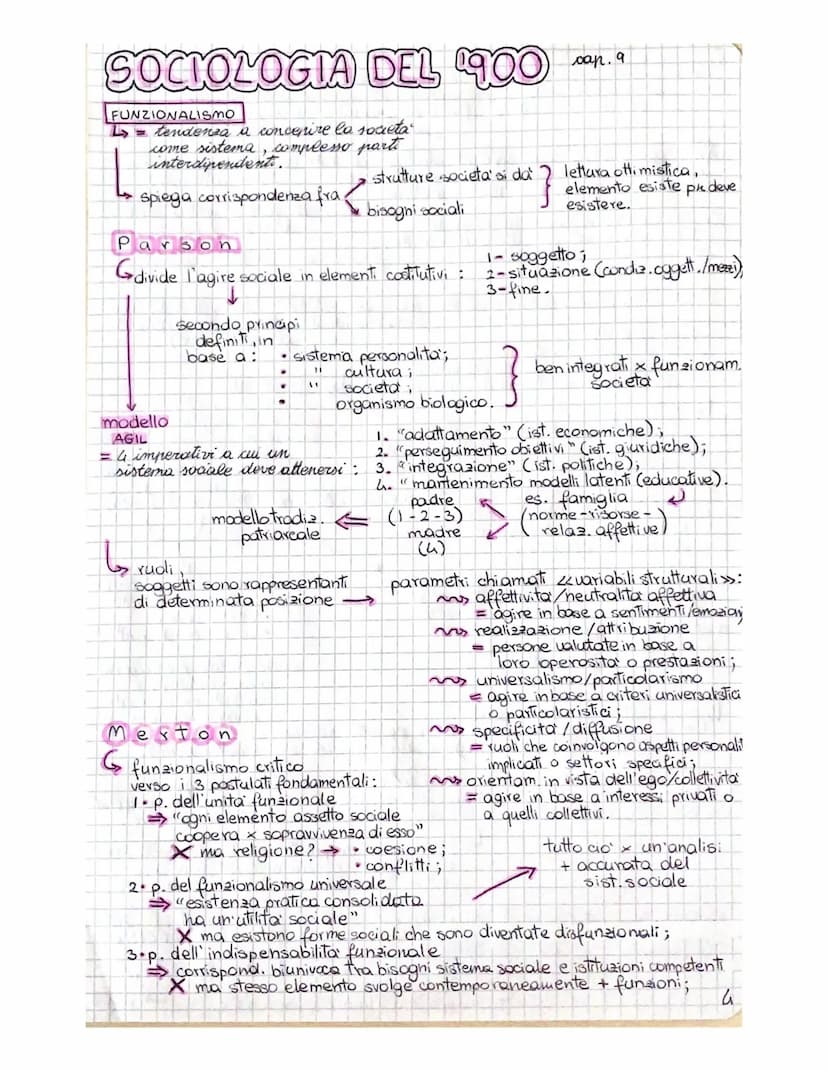 SOCIOLOGIA DEL '900 cap. 9
FUNZIONALISMO
↳ = tendenza a concepire la società
come sistema, complesso parti
interdipendenti.
↳ spiega corrispondenza fra
strutture società si dà
bisogni sociali
lettura ottimistica,
elemento esiste pk deve
esistere.
Parson
↳ divide l'agire sociale in elementi costitutivi :
1- soggetto ;
2- situazione (condiz. oggett./mezzi);
3- fine.
secondo principi
definiti, in
base a :
• sistema personalità ;
• " cultura ;
• " società ;
• organismo biologico.
ben integrati x funzionam.
società
modello
AGIL
= 4 imperativi a cui un
sistema sociale deve attenersi :
1. "adattamento" (ist. economiche) ;
2. "perseguimento obiettivi" (ist. giuridiche);
3. "integrazione" (ist. politiche);
4. "mantenimento modelli latenti (educative).
es. famiglia
(norme-risorse-
relaz. affettive)
padre
(1-2-3)
madre
(4)
modello tradiz. ⇐
patriarcale
↳ ruoli,
soggetti sono rappresentanti
di determinata posizione →
parametri chiamati «variabili strutturali»:
affettività/neutralità affettiva
= agire in base a sentimenti/emozioni
realizzazione/attribuzione
= persone valutate in base a
loro operosità o prestazioni ;
universalismo/particolarismo
= agire in base a criteri universalistici
o particolaristici ;
specificità/diffusione
= ruoli che coinvolgono aspetti personali
implicati o settori specifici ;
orientam. in vista dell'ego/collettività
= agire in base a interessi privati o
a quelli collettivi.
Merton
↳ funzionalismo critico
verso i 3 postulati fondamentali :
1• p. dell'unità funzionale
⇒ "ogni elemento assetto sociale
coopera x sopravvivenza di esso"
X ma religione? → • coesione ;
• conflitti ;
2• p. del funzionalismo universale
⇒ "esistenza pratica consolidata
ha un'utilità sociale"
X ma esistono forme sociali che sono diventate disfunzionali ;
tutto ciò x un'analisi
+ accurata del
sist. sociale
3• p. dell'indispensabilità funzionale
⇒ corrispond. biunivoca tra bisogni sistema sociale e istituzioni competenti
X ma stesso elemento svolge contemporaneamente + funzioni ;
4